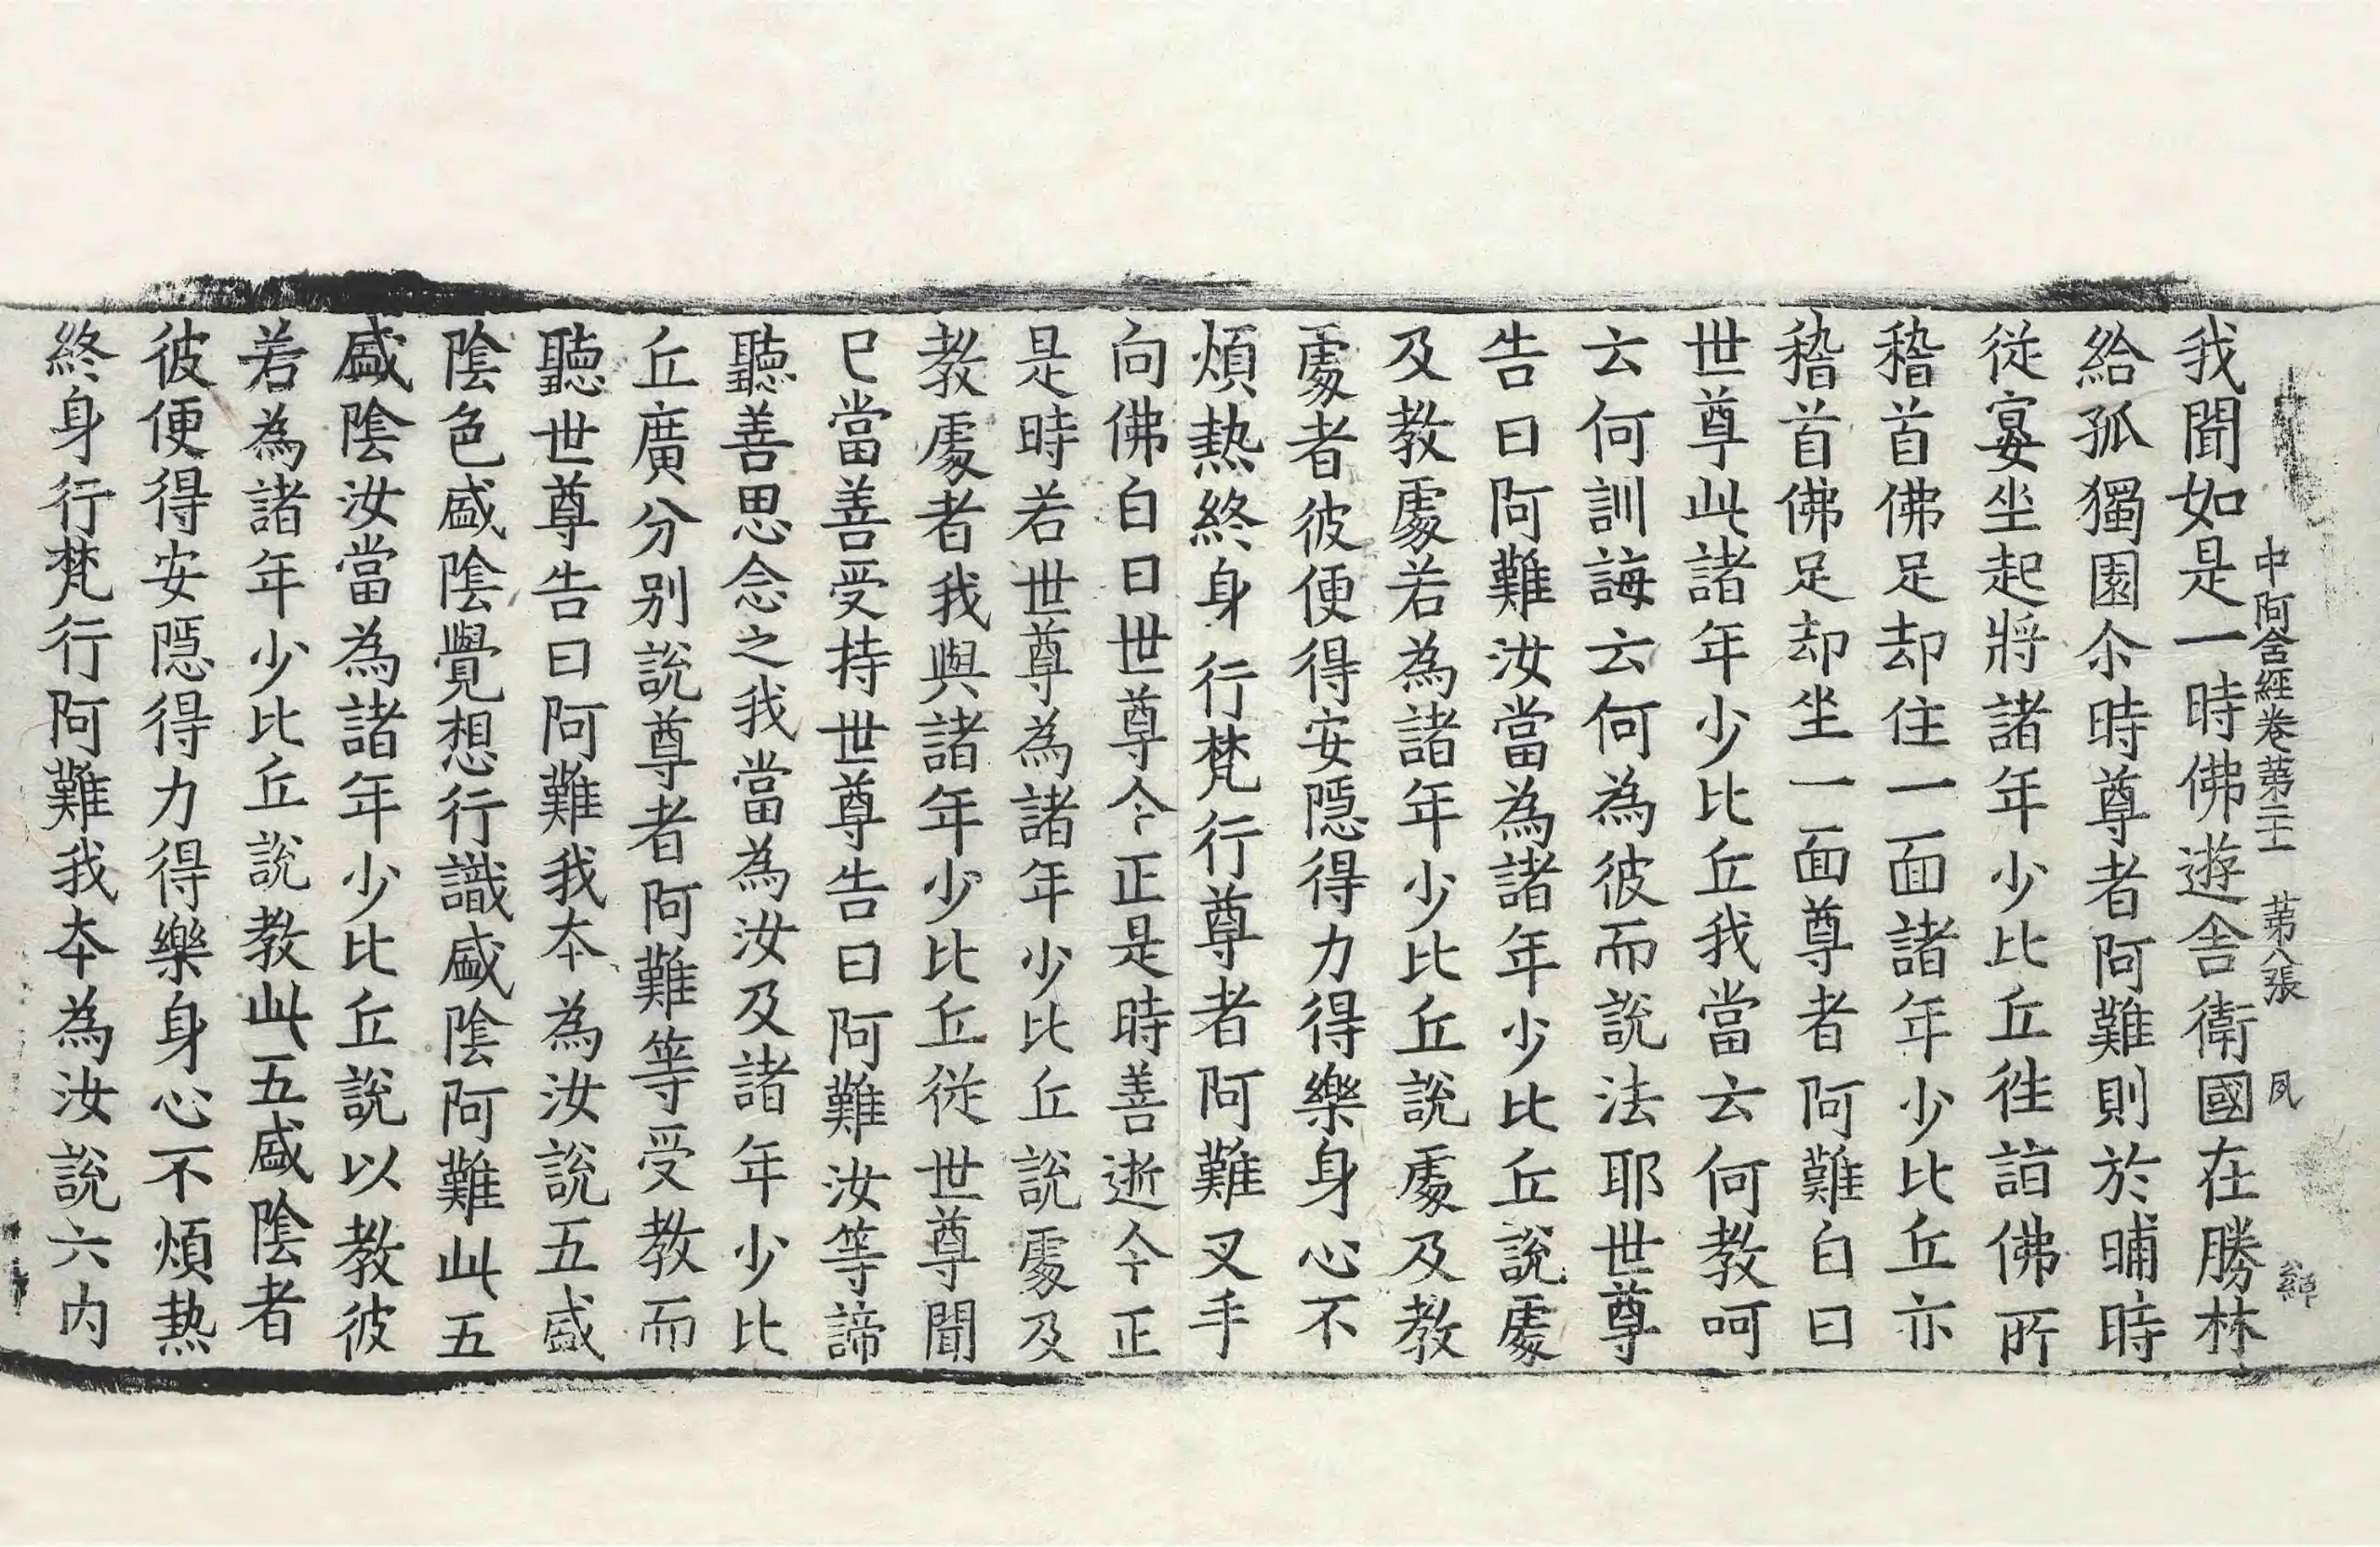 中阿含經卷第二十一　第八張　夙
我聞如是一時佛遊舍衛國在勝林
給孤獨園尒時尊者阿難則於晡時
從宴坐起將諸年少比丘徃詣佛所
稽首佛足却住一面諸年少比丘亦
稽首佛足却坐一面尊者阿難白曰
世尊此諸年少比丘我當云何教呵
云何訓誨云何為彼而說法耶世尊
告曰阿難汝當為諸年少比丘說處
及教處若為諸年少比丘說處及教
處者彼便得安隱得力得樂身心不
煩熱終身行梵行尊者阿難叉手
向佛白曰世尊今正是時善逝今正
是時若世尊為諸年少比丘說處及
教處者我與諸年少比丘從世尊聞
已當善受持世尊告曰阿難汝等諦
聽善思念之我當為汝及諸年少比
丘廣分別說尊者阿難等受教而
聽世尊告曰阿難我本為汝說五盛
陰色盛陰覺想行識盛陰阿難此五
盛陰汝當為諸年少比丘說以教彼
若為諸年少比丘說教此五盛陰者
彼便得安隱得力得樂身心不煩熱
終身行梵行阿難我本為汝說六內